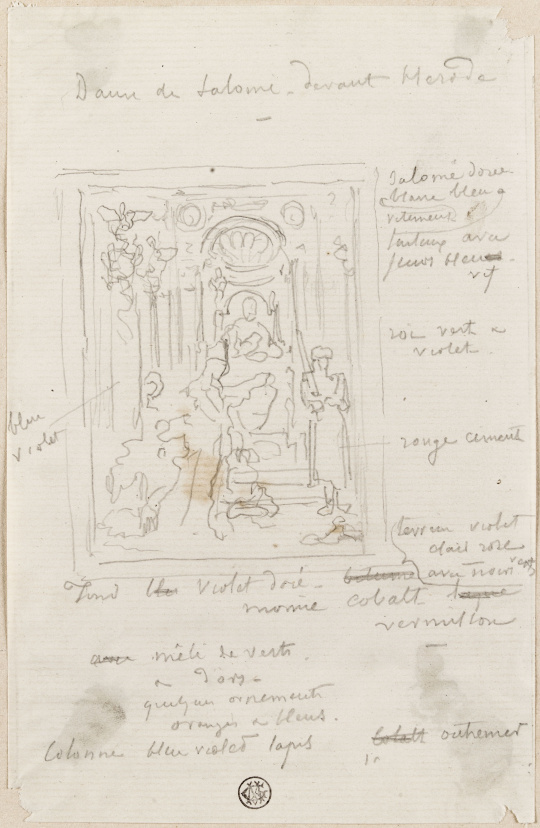 Danse de Salomé devant Herode
Salomé dorée
blanc bleu
vêtement
avec
fleurs bleu
vif
roi vert
violet
bleu
violet
rouge
terrain violet
clair rose
avec noir
Fond violet doré
momie cobalt laque
vermillon
mêlé de verts
d'ors
quelques ornements
orangés bleus
Colonne bleu violet lapis
cobalt outremer